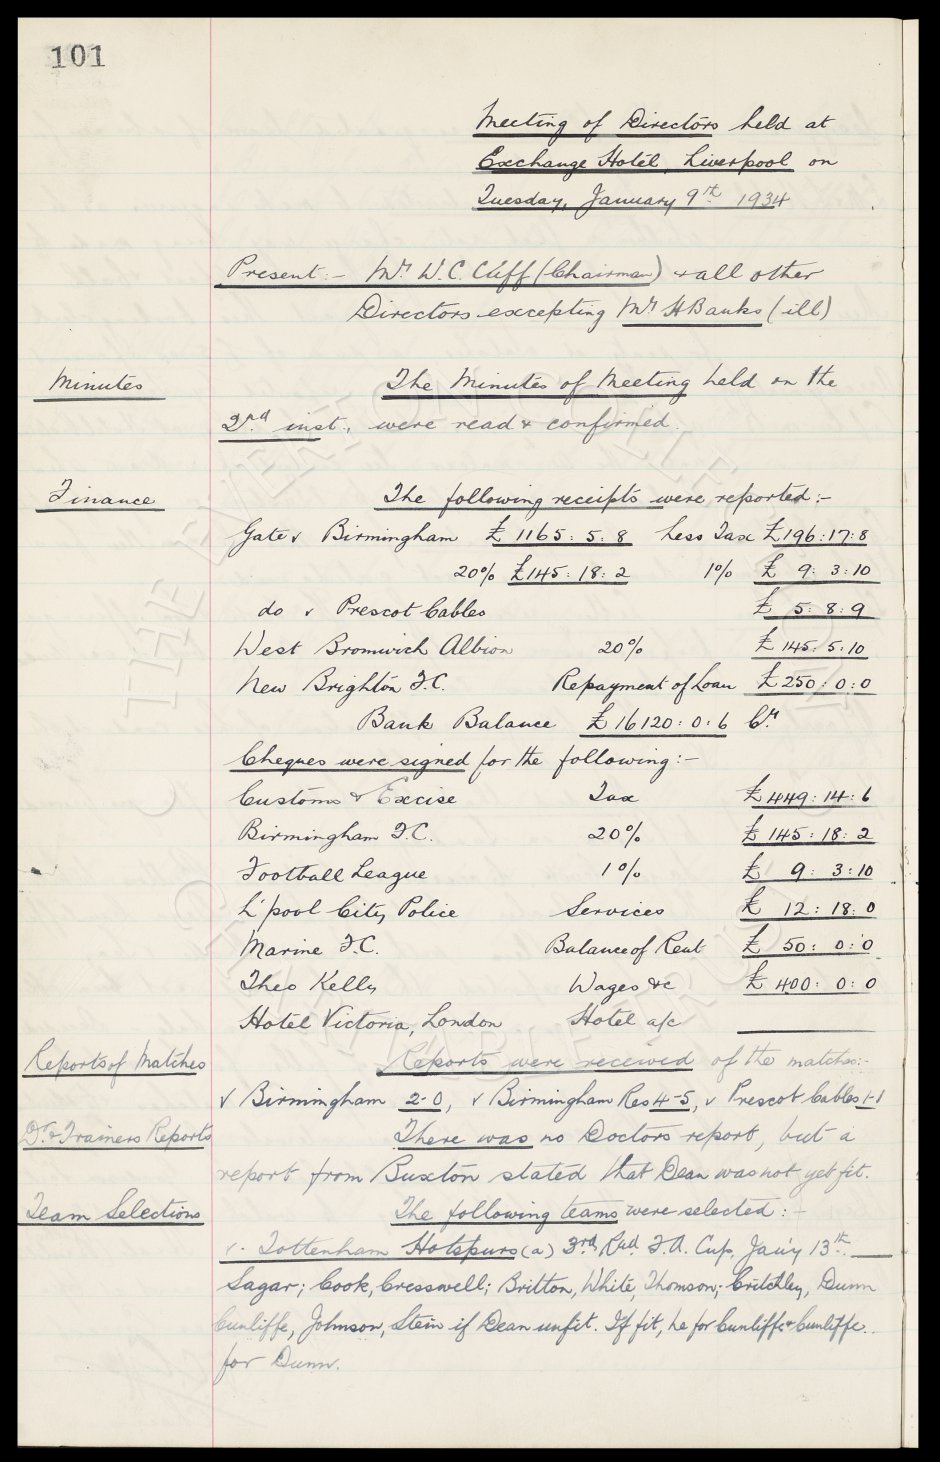 101
Meeting of Directors held at
Exchange Hotel, Liverpool on
Tuesday, January 9th 1934
Present:- Mr W.C. Cuff (Chairman) & all other
Directors excepting Mr H Banks (ill)
Minutes The Minutes of Meeting held on the
2nd inst., were read & confirmed.
Finance The following receipts were reported:-
Gate v Birmingham £1165:5:8 Less Tax £196:17:8
20% £145:18:2 1% £9:3:10
do v Prescot Cables £5:8:9
West Bromwich Albion 20% £145:5:10
New Brighton F.C. Repayment of Loan £250:0:0
Bank Balance £16120:0:6 Cr
Cheques were signed for the following:-
Customs & Excise Tax £449:14:6
Birmingham F.C. 20% £145:18:2
Football League 1% £9:3:10
L'pool City Police Services £12:18:0
Marine F.C. Balance of Rent £50:0:0
Theo Kelly Wages &c £400:0:0
Hotel Victoria, London Hotel a/c
Reports of Matches Reports were received of the matches:-
v Birmingham 2-0, v Birmingham Res 4-5, v Prescot Cables 1-1
Dr & Trainers Reports There was no Doctors report, but a
report from Buxton stated that Dean was not yet fit.
Team Selections The following teams were selected:-
v. Tottenham Hotspurs (a) 3rd Rnd F.A. Cup, Jan'y 13th
Sagar; Cook, Cresswell; Britton, White, Thomson; Critchley, Dunn
Cunliffe, Johnson, Stein if Dean unfit. If fit, he for Cunliffe & Cunliffe
for Dunn.
THE EVERTON COLLECTION
CHARITABLE TRUST